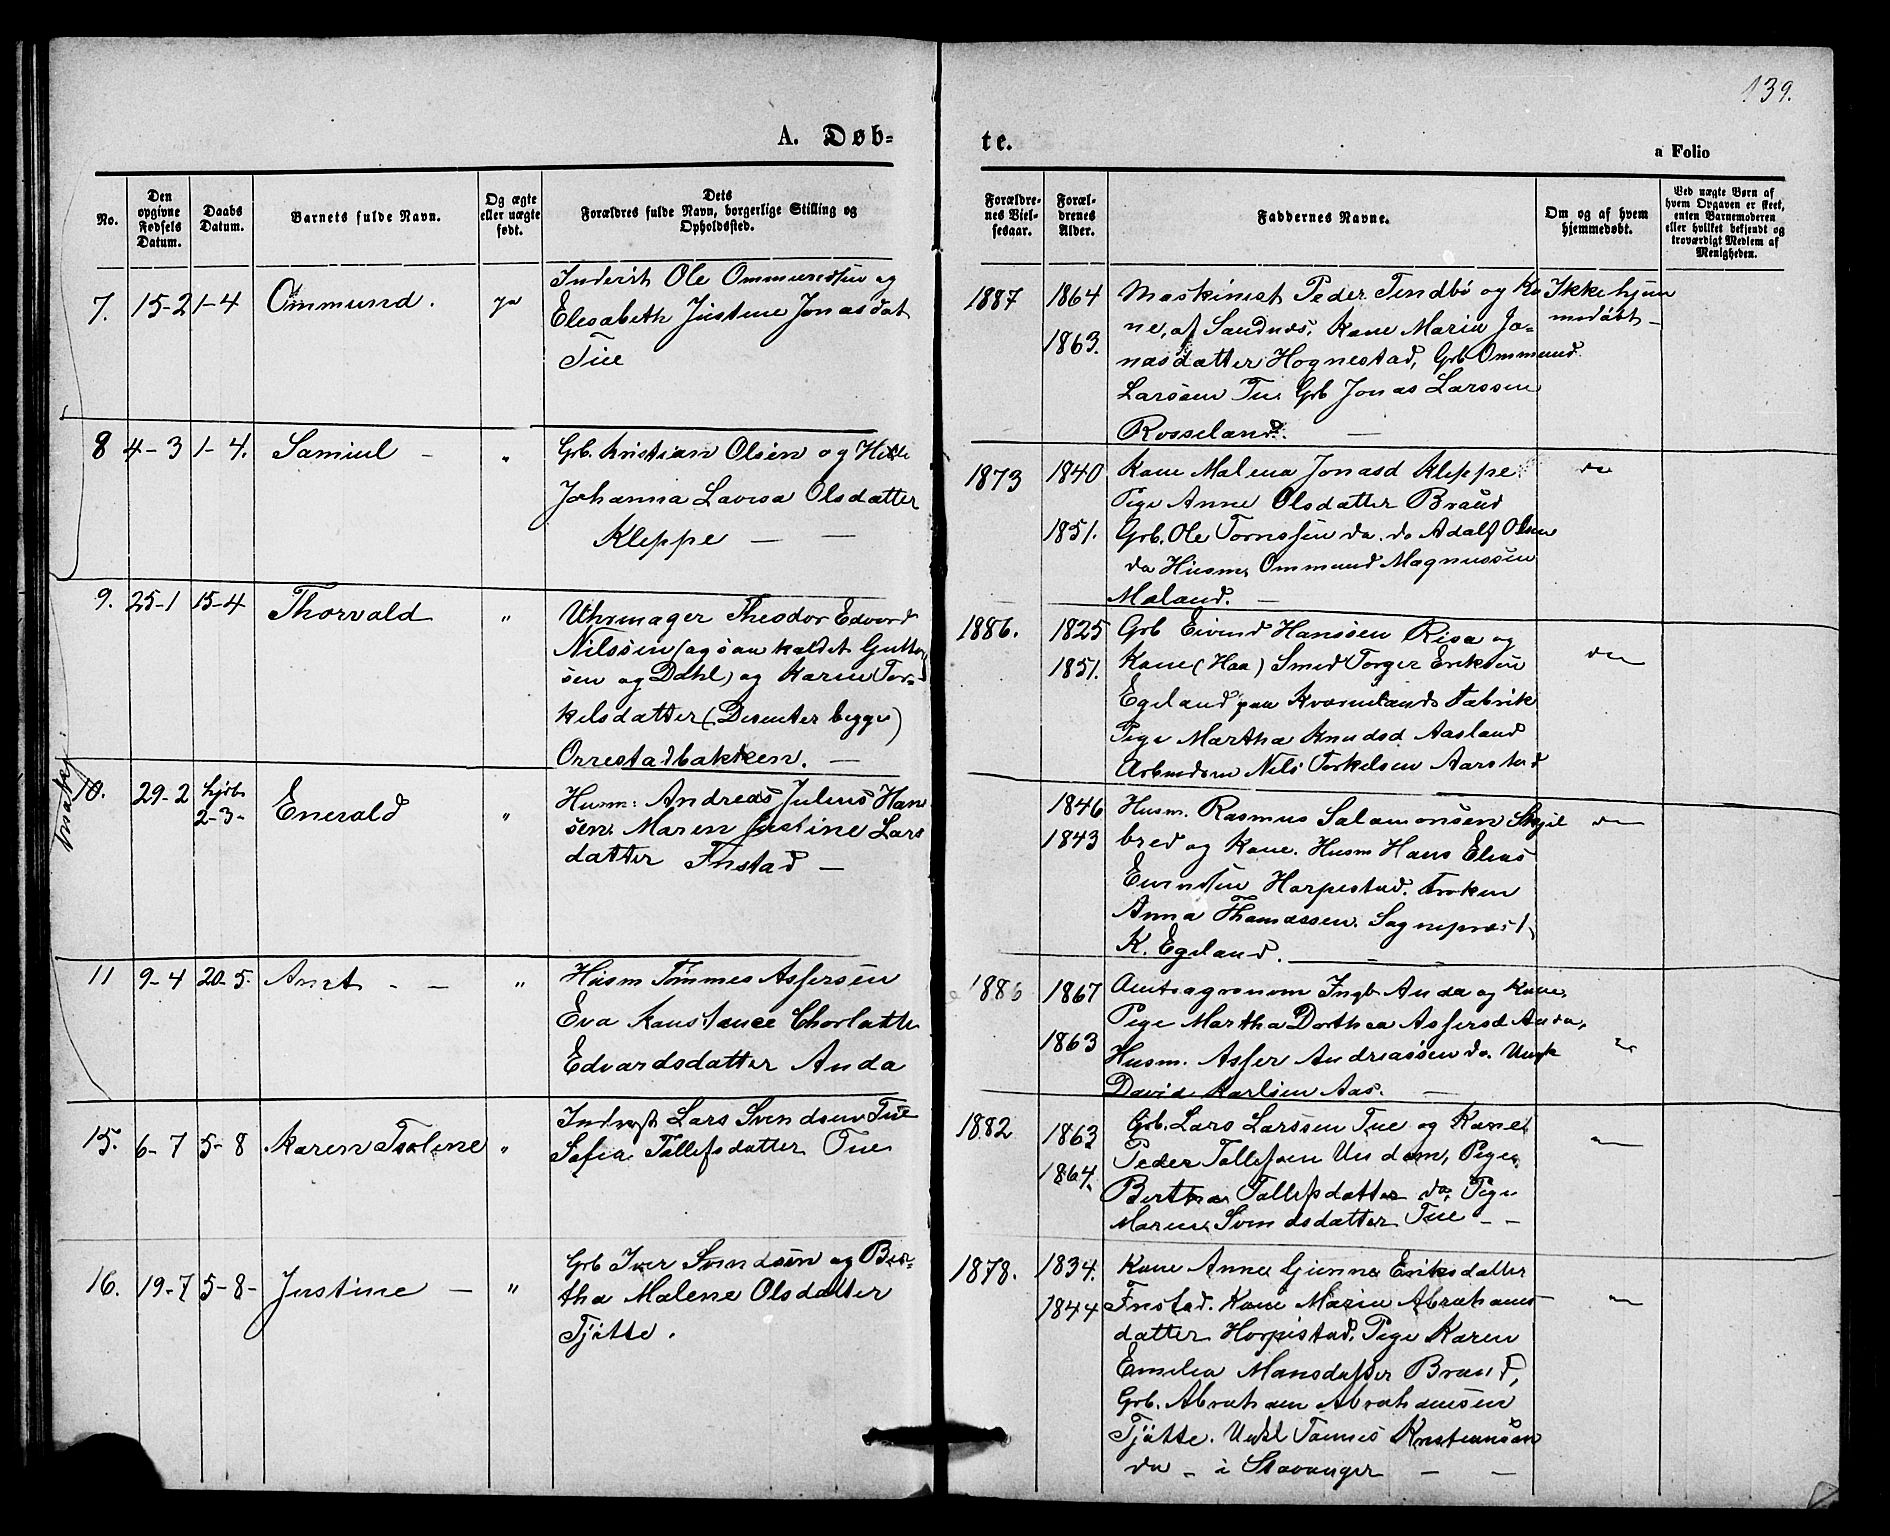 139.
A. Døb=
te.
a Folio
No.
Den opgivne Fødsels Datum.
Daabs Datum.
Barnets fulde Navn.
Og ægte eller uægte født.
Dets Forældres fulde Navn, borgerlige Stilling og Opholdssted.
Forældrenes Vielsesaar.
Forældrenes Alder.
Faddernes Navne.
Om og af hvem hjemmedøbt.
Ved uægte Børn af hvem Opgaven er skeet, enten Barnemoderen eller hvilket bekjendt og troværdigt Medlem af Menigheden.
7. 15-2 1-4 Ommund. ja
Inderst Ole Ommundsen og
Elesabeth Justine Jonasdat
Tue
1887 1864 1863.
Maskinist Peder Tendbø og Ko
ne, af Sandnæs, Kone Maria Jo-
nasdatter Hognestad, Grb Ommund
Larsen Tu. Grb Jonas Larssen
Rosseland. —
Ikke hjem
medøbt —
8 4-3 1-4. Samuel — "
Grb. Kristian Olsen og
Johanna Lavisa Olsdatter
Kleppe — —
1873 1840 1851.
Kone Malena Jonasd Kleppe
Pige Anne Olsdatter Braud
Grb. Ole Tornssen do. do Adalf Olsen
do Husm. Ommund Magnussen
Maland. —
do
9. 25-1 15-4 Thorvald "
Uhrmager Theodor Edvard
Nilssen (ogsaa kaldet Guttor
sen og Dahl) og Karin Tor-
kelsdatter (Desenter begge)
Orrestadbakken. —
1886. 1825 1851.
Grb Eivind Hanssen Risa og
Kone (Haa) Smed Torger Eriksen
Egeland paa Kvernelands Fabrik
Pige Martha Knudsd Aasland
Arbeidsm Nils Torkelsen Aarstad
do
10. 29-2 hjdb 2-3- Enevald "
Husm: Andreas Julius Han
sen. Maren Justine Lars
datter Fristad —
1846 1843
Husm. Rasmus Salamonsen Skjel
bred og Kone. Husm Hans Elias
Horpestad. Frøken
Anna Thomassen. Sognepræst
K. Egeland. —
do
11 9-4 20-5. Arnt - - "
Husm Tønnes Assersen
Eva Konstance Chorlotte
Edvardsdatter Anda
1886 1867 1863
Amtsagronom Ingb. Anda og Kone,
Pige Martha Dorthea Assersd Anda,
Husm. Asser Andreassen do. Ungk
David Karlsen Aas. —
15. 6-7 5-8 Karen Tsolene "
Indrest Lars Svendsen Tue
Sofia Tollefsdatter Tue
1882 1863 1864.
Grb. Lars Larssen Tue og Kone
Peder Tollefsen Undem, Pige
Bertha Tollefsdatter do, Pige
Maren Svendsdatter Tue - -
16. 19-7 5-8- Justine — "
Grb Iver Svendsen og Ber-
tha Malene Olsdatter
Tjøtte.
1878. 1834. 1844
Kone Anne Gunne Eriksdatter
Fristad. Kone Marin Abrahams
datter Horpestad. Pige Karen
Emelia Monsdatter Braud,
Grb. Abraham Abrahamsen
Tjøtte. Ungkl Tønnes Kristiansen
do - i Stavanger — —